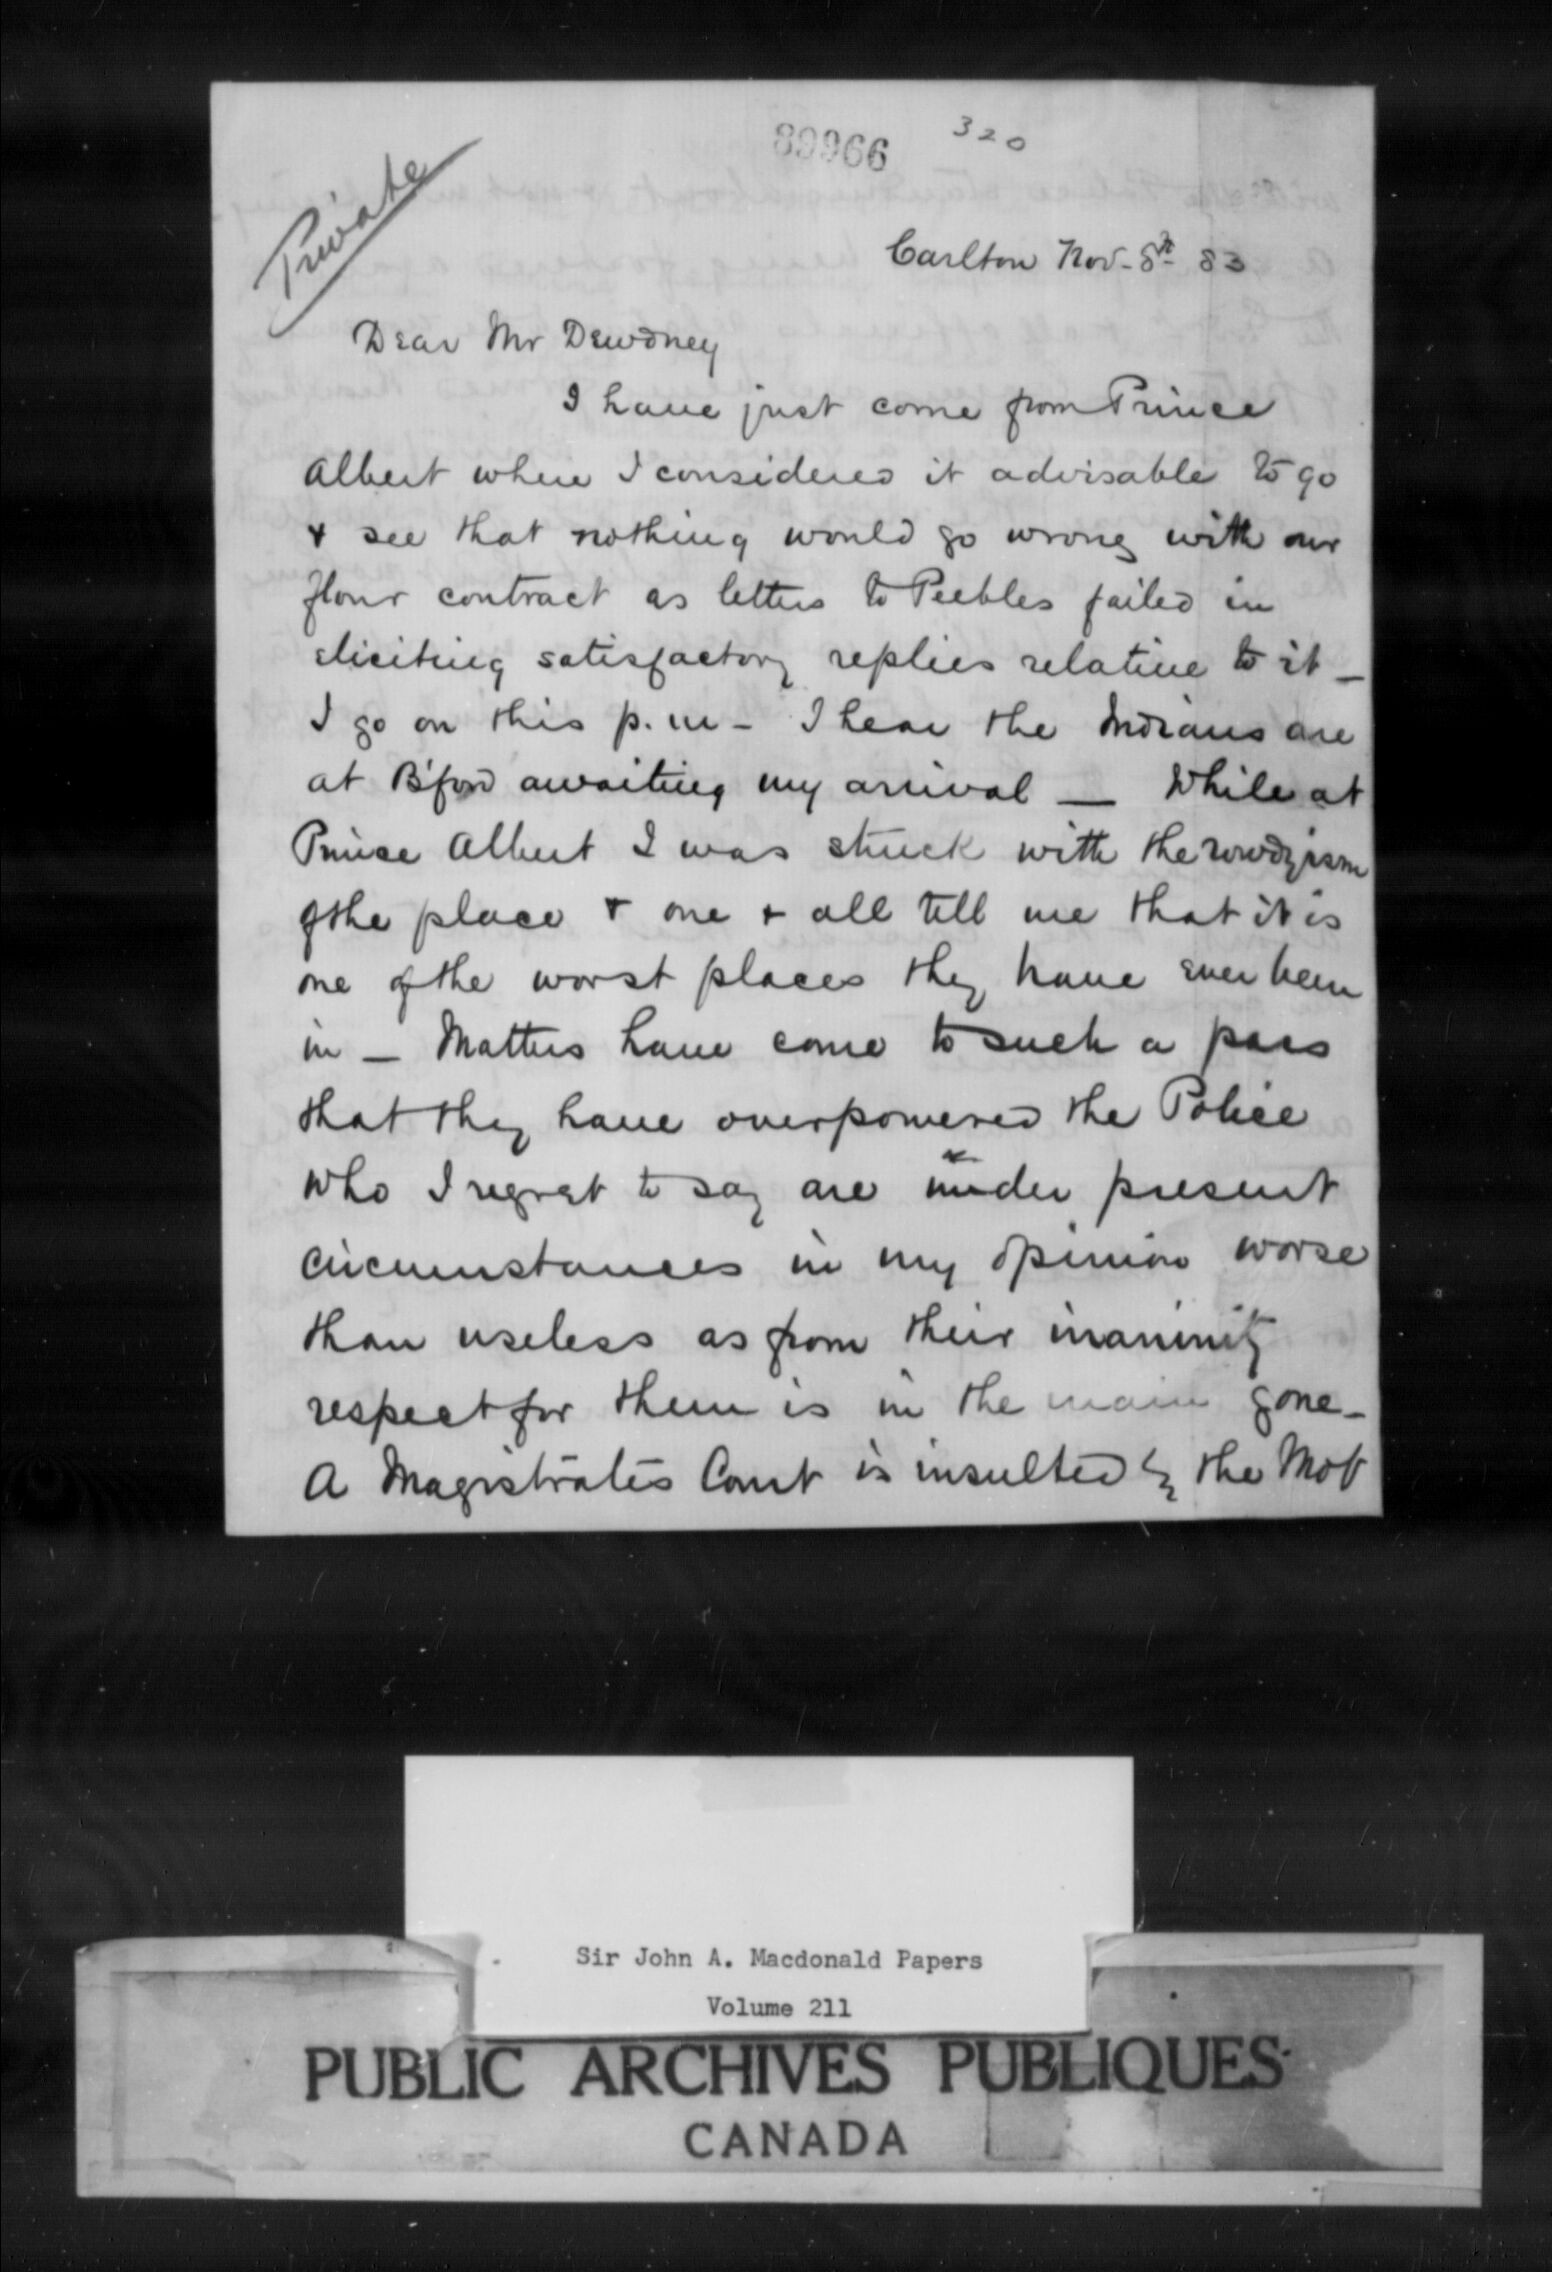 89966 320
Private
Carlton Nov. 8th 83
Dear Mr Dewdney
I have just come from Prince
Albert where I considered it advisable to go
& see that nothing would go wrong with our
flour contract as letters to Peebles failed in
eliciting satisfactory replies relative to it _
I go on this p.m - I hear the Indians are
at B'ford awaiting my arrival _ While at
Prince Albert I was struck with the rowdyism
of the place & one & all tell me that it is
one of the worst places they have ever been
in _ Matters have come to such a pass
that they have overpowered the Police
who I regret to say are under present
circumstances in my opinion worse
than useless as from their
respect for them is in the main gone _
A Magistrates Court is insulted by the Mob
Sir John A. Macdonald Papers
Volume 211
PUBLIC ARCHIVES PUBLIQUES
CANADA